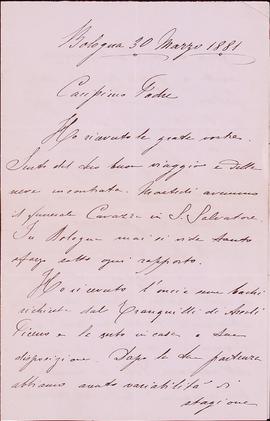 Bologna 30 Marzo 1881
Carissimo Padre
Ho ricevuto le grate vostre.
Sento del suo buon viaggio e della
neve incontrata. Martedì avemmo
il funerale Cavazza in S. Salvatore.
In Bologna mai si vide tanto
sfarzo sotto ogni rapporto.
Ho ricevuto l'oncia seme bachi
richiesta dal Tranquilli di Ascoli
Piceno e la tengo in casa a sua
disposizione. Dopo la sua partenza
abbiamo avuto variabilità di
stagione